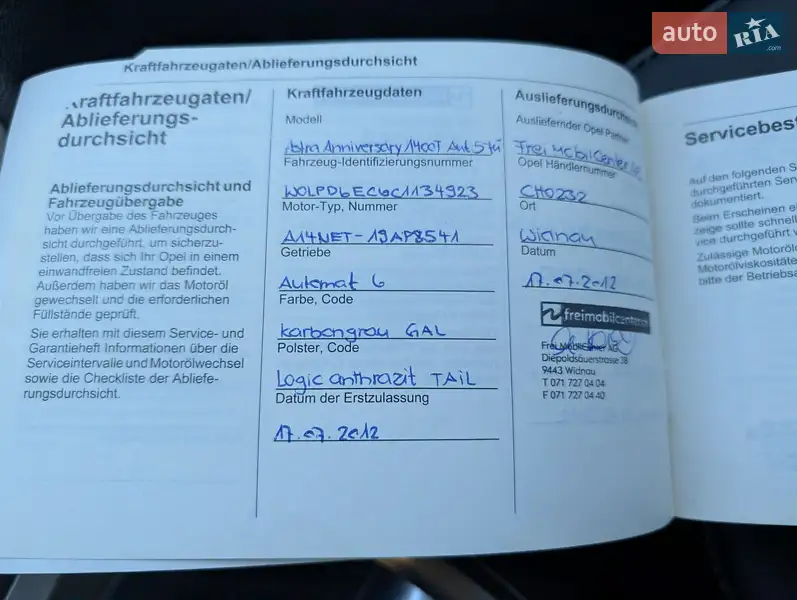 auto RIA .com
Kraftfahrzeugaten/Ablieferungsdurchsicht
Kraftfahrzeugaten/
Ablieferungs-
durchsicht
Ablieferungsdurchsicht und
Fahrzeugübergabe
Vor Übergabe des Fahrzeuges
haben wir eine Ablieferungsdurch-
sicht durchgeführt, um sicherzu-
stellen, dass sich Ihr Opel in einem
einwandfreien Zustand befindet.
Außerdem haben wir das Motoröl
gewechselt und die erforderlichen
Füllstände geprüft.
Sie erhalten mit diesem Service- und
Garantieheft Informationen über die
Serviceintervalle und Motorölwechsel
sowie die Checkliste der Abliefe-
rungsdurchsicht.
Kraftfahrzeugdaten
Modell
Astra Anniversary 1400T Aut. 5tü
Fahrzeug-Identifizierungsnummer
W0LPD6EC6C1134923
Motor-Typ, Nummer
A14NET-19AP8541
Getriebe
Automat 6
Farbe, Code
Karbongrau GAL
Polster, Code
Logic anthrazit TAIL
Datum der Erstzulassung
17.07.2012
Auslieferungsdurch
Ausliefernder Opel Partner
Freimobilcenter
Opel Händlernummer
CH0232
Ort
Widnau
Datum
17.07.2012
freimobilcenter
Frei
Diepoldsauerstrasse 38
9443 Widnau
T 071 727 04 04
F 071 727 04 40
Servicebest
Auf den folgenden S
durchgeführten Ser
dokumentiert.
Beim Erscheinen e
zeige sollte schnell
vice durchgeführt
Zulässige Motoröl
Motorölviskositäte
bitte der Betriebsa